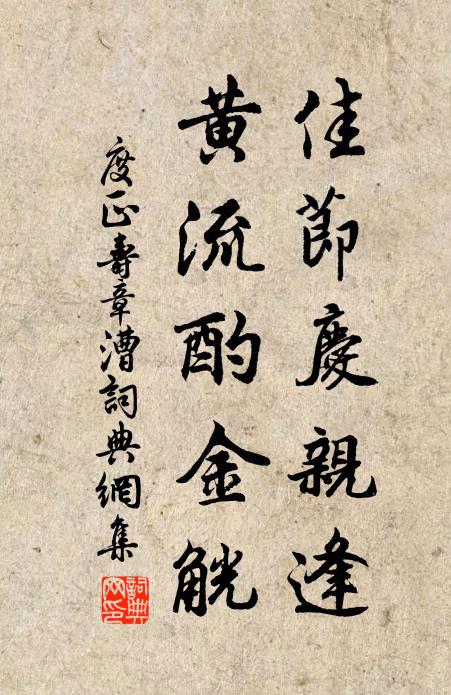 佳節慶親逢
黃流酌金觥
度正壽章漕詞典網集
詞典網印